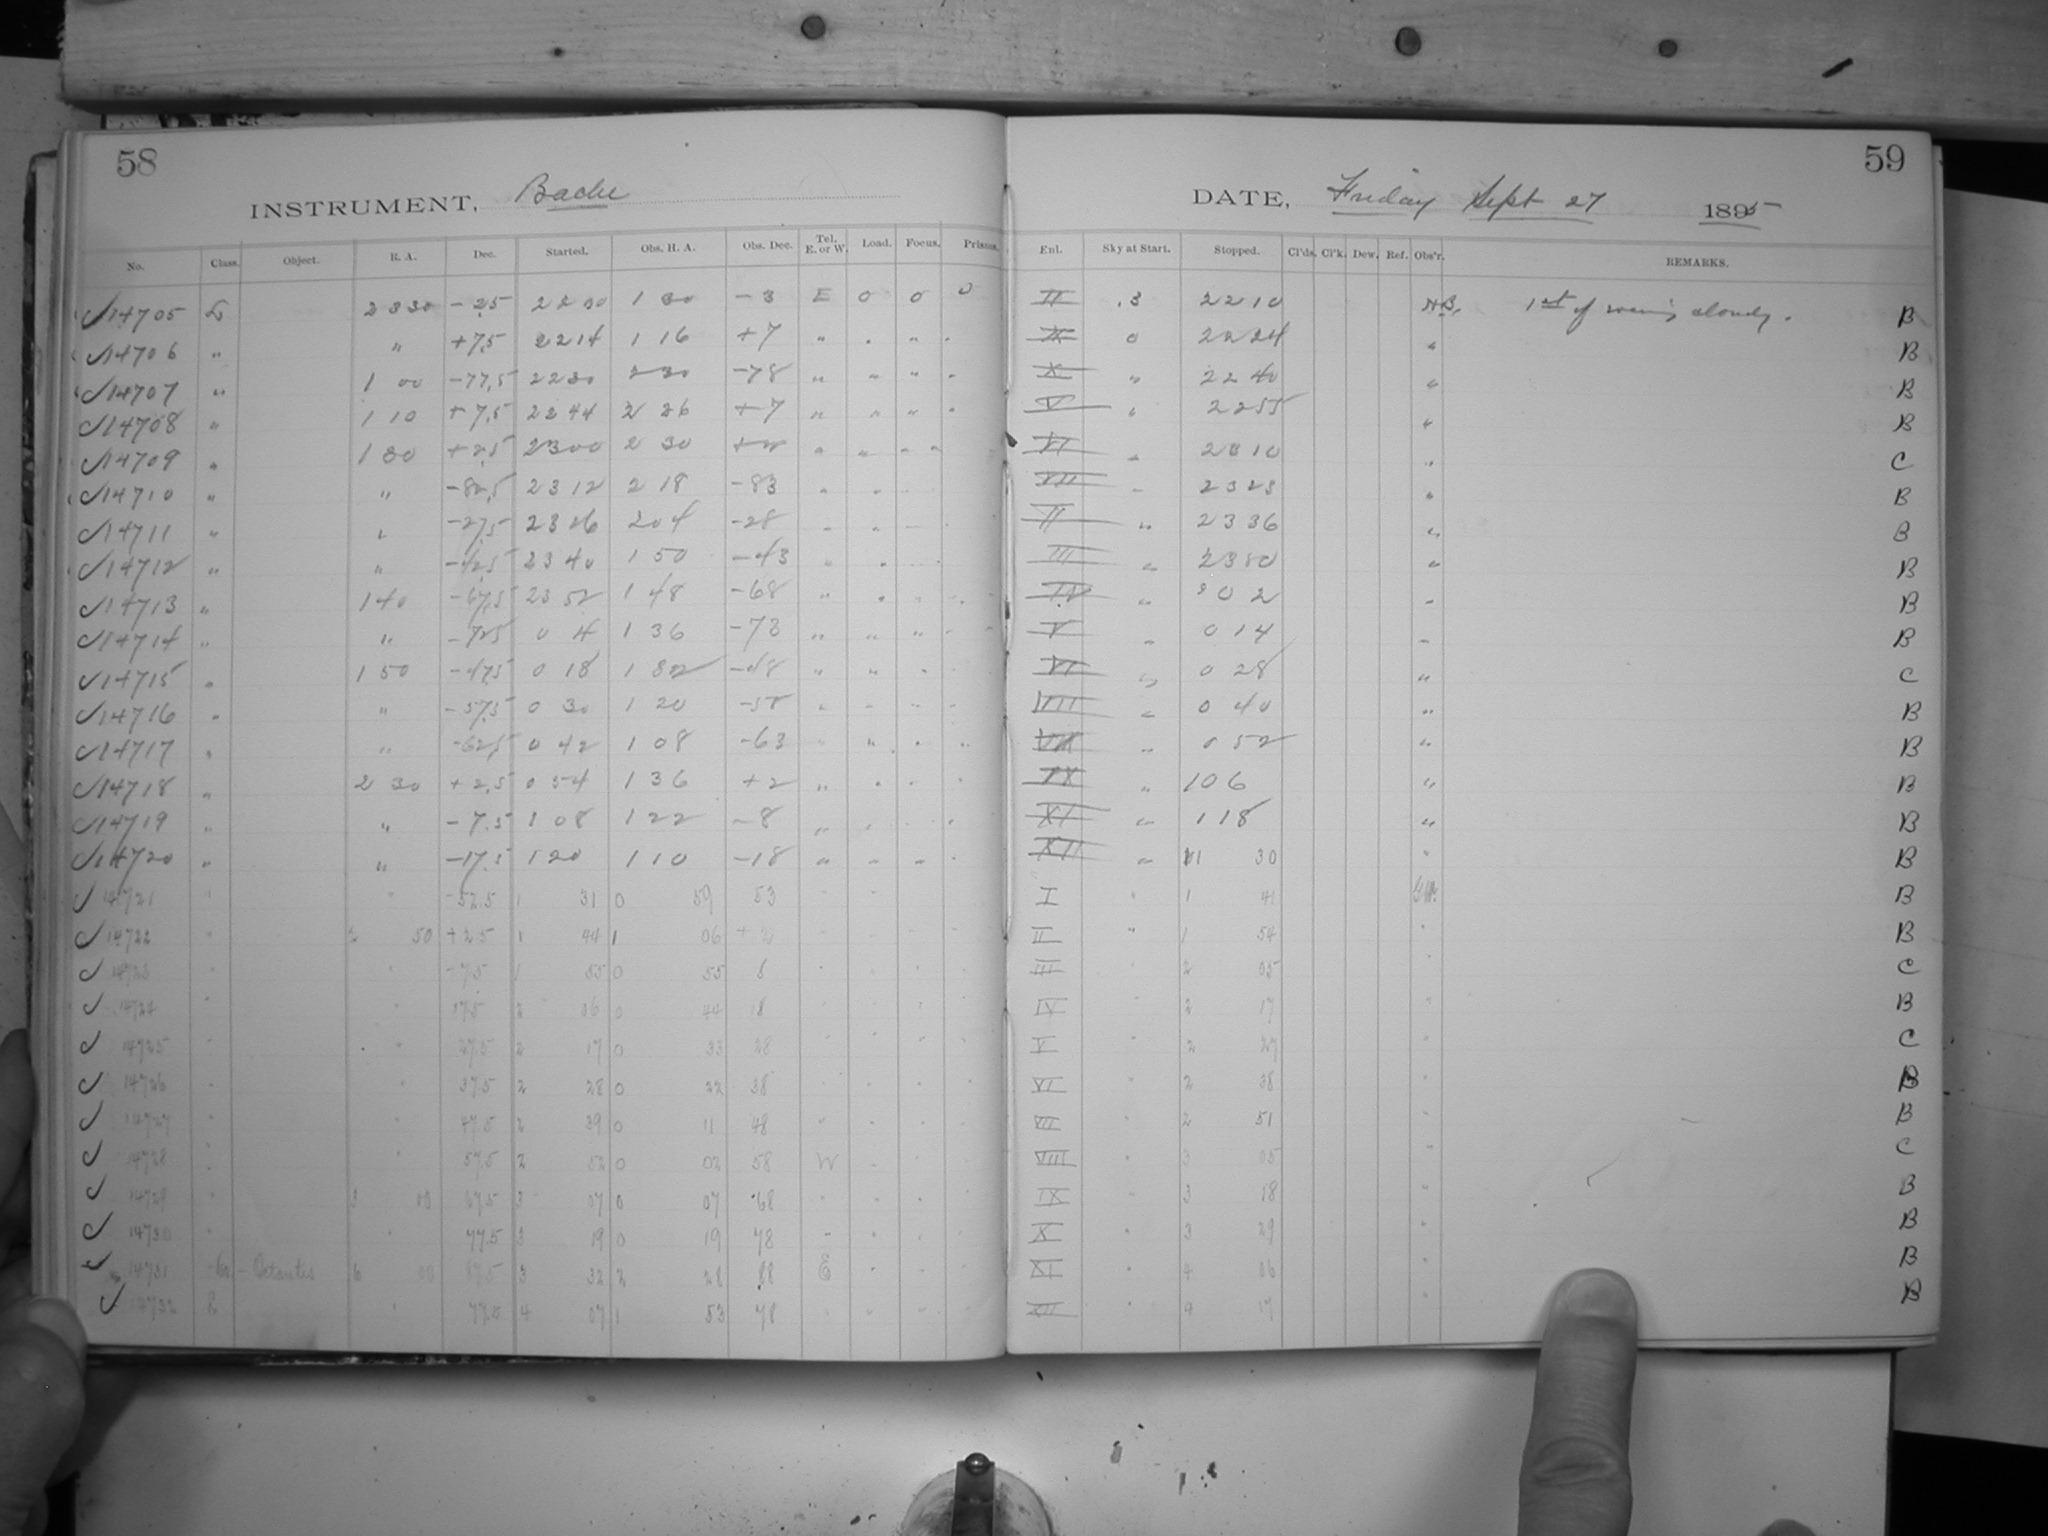 58
59
INSTRUMENT, Bache
DATE, Friday Sept 27 1895
No. Class. Object. R. A. Dec. Started. Obs. H. A. Obs. Dec. Tel. E. or W. Load. Focus. Prisms. Enl. Sky at Start. Stopped. Cl'ds. Cl'k. Dew. Ref. Obs'r. REMARKS.
14705 23 30 -2.5 1 30 -3 E 0 0 0 II .3 22 10 1st of evening cloudy. B
14706 " +7.5 22 14 1 16 +7 " " " " 0 22 24 " B
14707 " 1 00 -77.5 22 30 2 30 -78 " " " " X " 22 40 " B
14708 " 1 10 +7.5 22 44 2 26 +7 " " " " V " 22 55 " B
14709 " 1 30 +2.5 23 00 2 30 +2 " " " " VI " 23 10 " C
14710 " " -82.5 23 12 2 18 -83 " " VII " 23 23 " B
14711 " " -27.5 23 26 2 04 -28 " " II " 23 36 " B
14712 " " -42.5 23 40 1 50 -43 " " III " 23 50 " B
14713 " 1 40 -67.5 23 52 1 48 -68 " " " IV " 0 02 " B
14714 " " -72.5 0 4 1 36 -73 " " " " V " 0 14 " B
14715 " 1 50 -47.5 0 18 1 32 -48 " " " " VI " 0 28 " C
14716 " " -57.5 0 30 1 20 -58 " " " " VIII " 0 40 " B
14717 " " -62.5 0 42 1 08 -63 " " " " " 0 52 " B
14718 " 2 30 +2.5 0 54 1 36 +2 " " " " IX " 1 06 " B
14719 " " -7.5 1 08 1 22 -8 " " " " XI " 1 18 " B
14720 " " -17.5 1 20 1 10 -18 " " " " XII " 1 30 " B
14721 " " -52.5 1 31 0 59 53 " " I " 1 41 B
14722 " 2 50 +2.5 1 44 1 06 +2 II " 1 54 " B
14723 " " -7.5 1 55 0 55 8 " " " " III " 2 05 " C
14724 " " 17.5 2 06 0 44 18 " " " " IV " 2 17 " B
14725 " " 27.5 2 17 0 33 28 " " " V " 2 27 " C
14726 " " 37.5 2 28 0 22 38 " " " " VI " 2 38 " B
14727 " " 47.5 2 39 0 11 48 " " " " VII " 2 51 " B
14728 " 57.5 2 52 0 02 58 W " " " VIII " 3 05 " C
14729 " 3 00 67.5 3 07 0 07 68 " " " " IX " 3 18 " B
14730 " " 77.5 3 19 0 19 78 " " " " X " 3 29 " B
14731 Octantis 6 00 87.5 3 32 2 28 88 E " " " XI " 4 06 " B
14732 " 77.5 4 07 1 53 78 " " " " XII " 4 17 " B